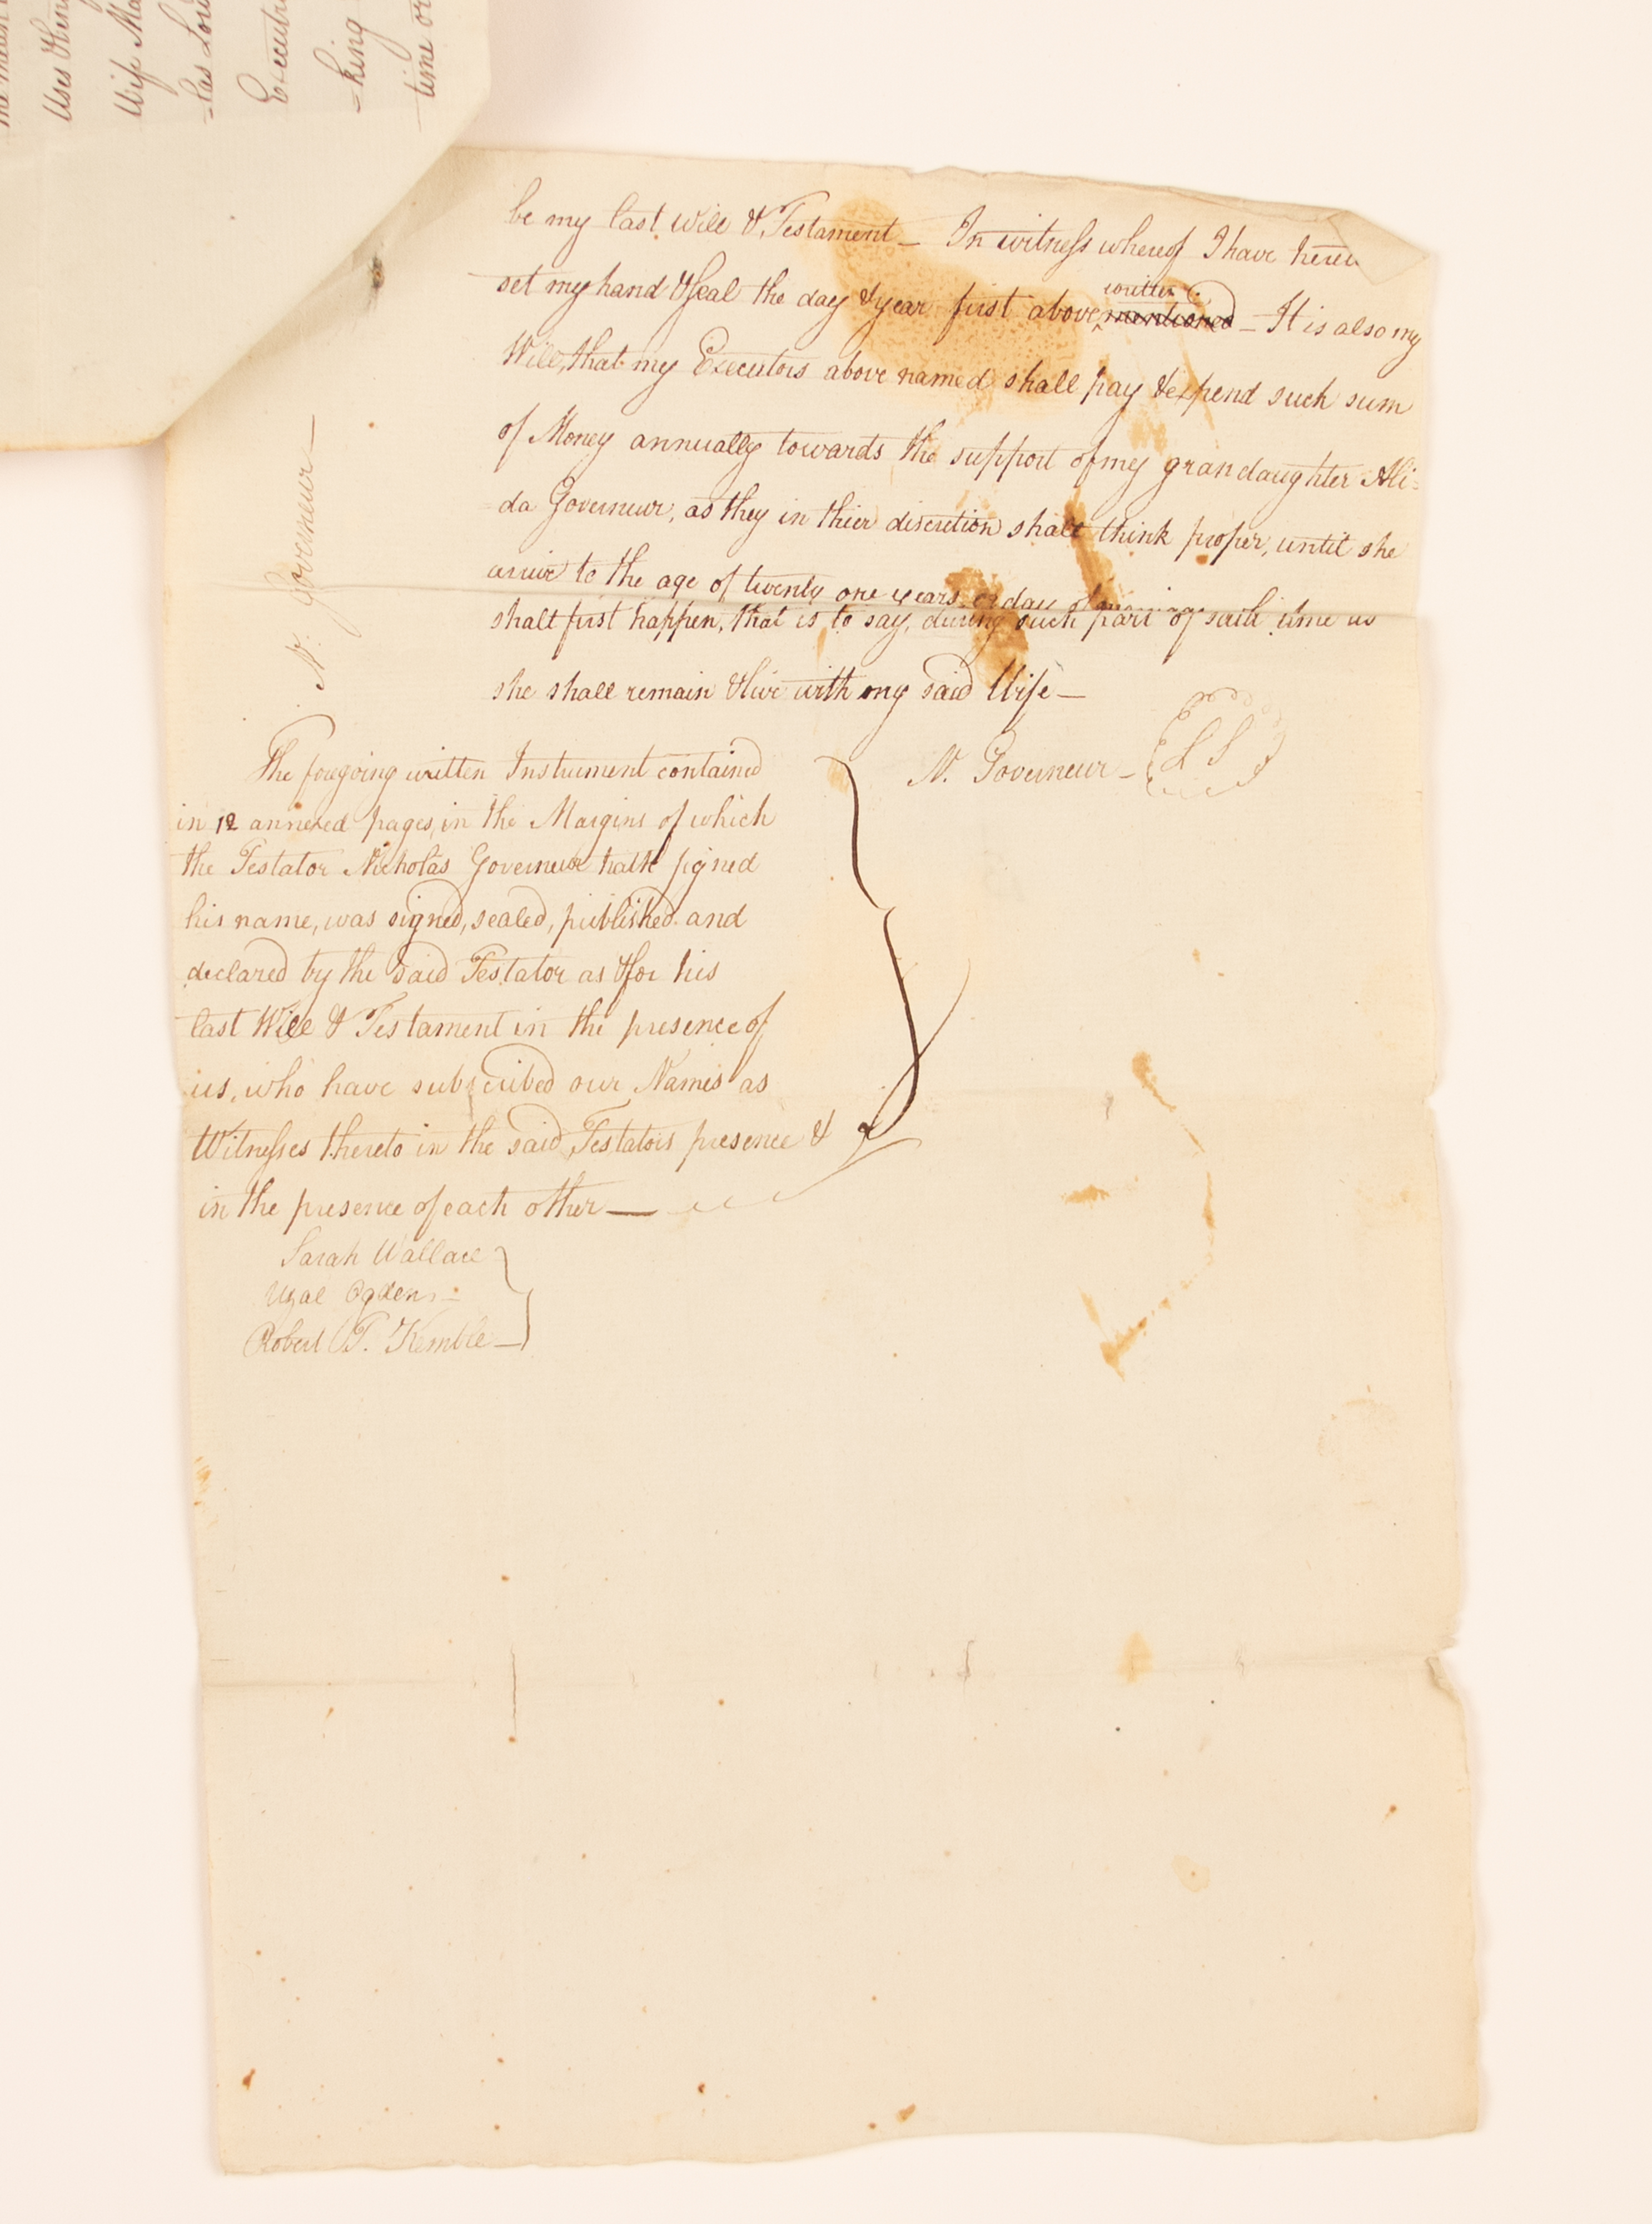 Uses &
Wife Ma
=las Lou
Executr
=king
time or
N. Governeur —
be my last Will & Testament — In witness whereof I have hereu
set my hand & Seal the day & year first above written mentioned — It is also my
Will, that my Executors above named shall pay & expend such sum
of Money annually towards the support of my grandaughter Ali=
=da Governeur, as they in thier discretion shall think proper, until she
arrive to the age of twenty one years or day of marriage
shall first happen, that is to say, during such part of said time as
she shall remain & live with my said Wife —
N. Governeur — L S
The foregoing written Instrument contained
in 12 annexed pages, in the Margins of which
the Testator Nicholas Governeur hath signed
his name, was signed, sealed, published and
declared by the said Testator as & for his
last Will & Testament in the presence of
us, who have subscribed our Names as
Witnesses thereto in the said Testators presence &
in the presence of each other —
Sarah Wallace
Uzal Ogden —
Robert T. Kemble —